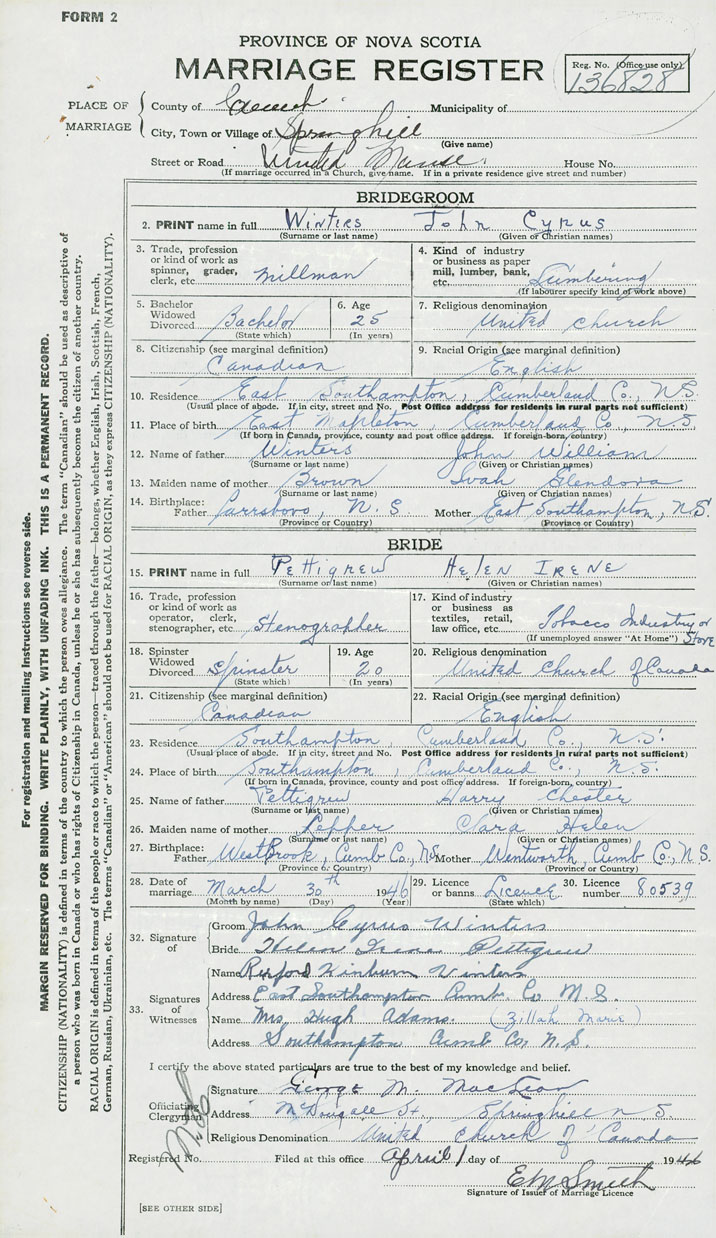 FORM 2
PROVINCE OF NOVA SCOTIA
MARRIAGE REGISTER
Reg. No. (Office use only)
136828
PLACE OF MARRIAGE
County of Cumb. Municipality of
City, Town or Village of Springhill
(Give name)
Street or Road United Manse House No.
(If marriage occurred in a Church, give name. If in a private residence give street and number)
BRIDEGROOM
2. PRINT name in full Winters John Cyrus
(Surname or last name) (Given or Christian names)
3. Trade, profession or kind of work as spinner, grader, clerk, etc. Millman
4. Kind of industry or business as paper mill, lumber, bank, etc. Lumbering
(If labourer specify kind of work above)
5. Bachelor Widowed Divorced Bachelor
(State which)
6. Age 25
(In years)
7. Religious denomination United Church
8. Citizenship (see marginal definition) Canadian
9. Racial Origin (see marginal definition) English
10. Residence East Southampton, Cumberland Co., N.S.
(Usual place of abode. If in city, street and No. Post Office address for residents in rural parts not sufficient)
11. Place of birth East Mapleton Cumberland Co., N.S.
(If born in Canada, province, county and post office address. If foreign-born, country)
12. Name of father Winters John William
(Surname or last name) (Given or Christian names)
13. Maiden name of mother Brown Ivah Glendora
(Surname or last name) (Given or Christian names)
14. Birthplace: Father Parrsboro, N.S. Mother East Southampton, N.S.
(Province or Country) (Province or Country)
BRIDE
15. PRINT name in full Pettigrew Helen Irene
(Surname or last name) (Given or Christian names)
16. Trade, profession or kind of work as operator, clerk, stenographer, etc. Stenographer
17. Kind of industry or business as textiles, retail, law office, etc. Tobacco Industry or Store
(If unemployed answer "At Home")
18. Spinster Widowed Divorced Spinster
(State which)
19. Age 20
(In years)
20. Religious denomination United Church of Canada
21. Citizenship (see marginal definition) Canadian
22. Racial Origin (see marginal definition) English
23. Residence Southampton, Cumberland Co., N.S.
(Usual place of abode. If in city, street and No. Post Office address for residents in rural parts not sufficient)
24. Place of birth Southampton, Cumberland Co., N.S.
(If born in Canada, province, county and post office address. If foreign-born, country)
25. Name of father Pettigrew Harry Chester
(Surname or last name) (Given or Christian names)
26. Maiden name of mother Lepper Clara Helen
(Surname or last name) (Given or Christian names)
27. Birthplace: Father West Brook, Cumb Co., N.S. Mother Wentworth, Cumb Co., N.S.
(Province or Country) (Province or Country)
28. Date of marriage March 30th 1946
(Month by name) (Day) (Year)
29. Licence or banns Licence
(State which)
30. Licence number 80539
32. Signature of
Groom John Cyrus Winters
Bride Helen Irene Pettigrew
33. Signatures of Witnesses
Name Rexford Kinburn Winters
Address East Southampton Cumb. Co N.S.
Name Mrs Hugh Adams. (Zillah Marie)
Address Southampton Cumb Co, N.S.
I certify the above stated particulars are true to the best of my knowledge and belief.
Officiating Clergyman
Signature George M. MacLean
Address McDougall St. Springhill N S.
Religious Denomination United Church of Canada
Registered No. Filed at this office April 1 day of 1946
E M Smith
Signature of Issuer of Marriage Licence
[SEE OTHER SIDE]
For registration and mailing instructions see reverse side.
MARGIN RESERVED FOR BINDING. WRITE PLAINLY, WITH UNFADING INK. THIS IS A PERMANENT RECORD.
CITIZENSHIP (NATIONALITY) is defined in terms of the country to which the person owes allegiance. The term "Canadian" should be used as descriptive of
a person who was born in Canada or who has rights of Citizenship in Canada, unless he or she has subsequently become the citizen of another country.
RACIAL ORIGIN is defined in terms of the people or race to which the person—traced through the father—belongs, whether English, Irish, Scottish, French,
German, Russian, Ukrainian, etc. The terms "Canadian" or "American" should not be used for RACIAL ORIGIN, as they express CITIZENSHIP (NATIONALITY).